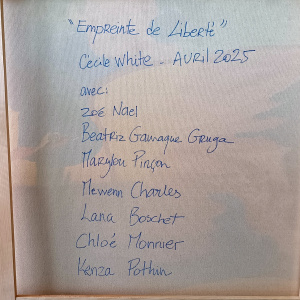 "Empreinte de Liberté"
Cécile White - AVRIL 2025
avec:
Zoé Nael
Beatriz Gamaque Gruga
Marylou Pinson
Mewenn Charles
Lana Boschet
Chloé Monnier
Kenza Pothin